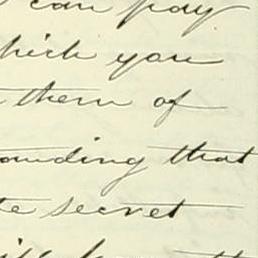 can pay
which you
them of
anding that
te secret